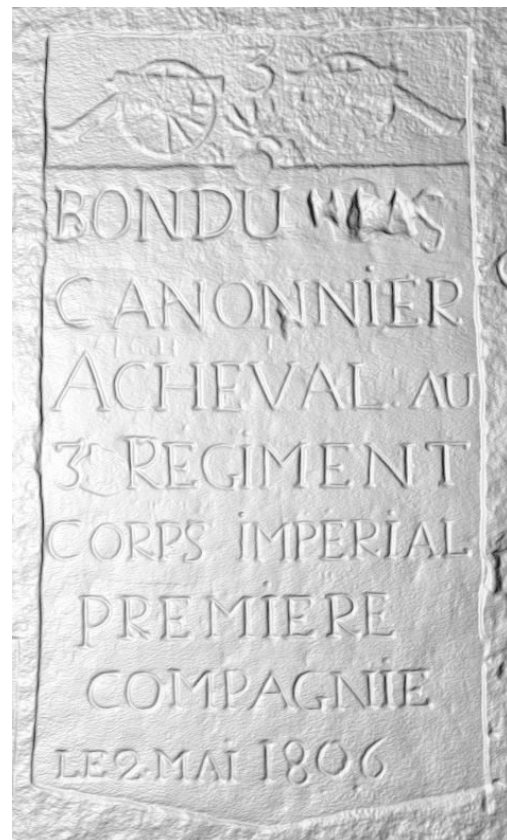 3
BONDU
CANONNIER
ACHEVAL AU
3e REGIMENT
CORPS IMPERIAL
PREMIERE
COMPAGNIE
LE 2 MAI 1806